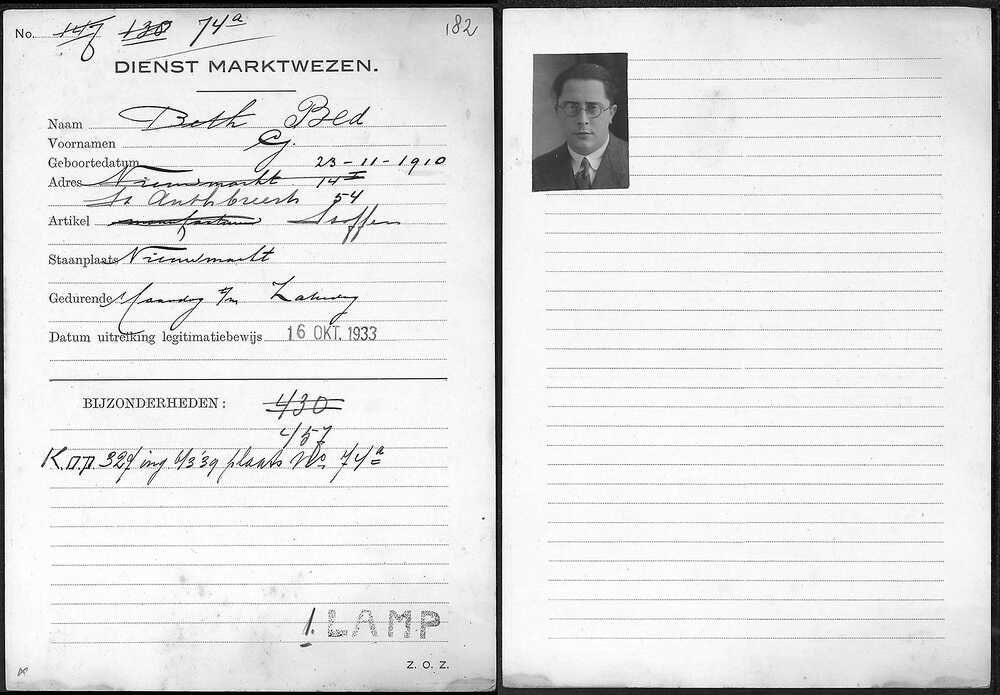 No. 147 130 74a
182
DIENST MARKTWEZEN.
Naam Both Bed
Voornamen G.
Geboortedatum 23-11-1910
Adres Nieuwmarkt 14 I
St. Anth.breestr 54
Artikel manufacturen Stoffen
Staanplaats Nieuwmarkt
Gedurende Maandag t/m Zaterdag
Datum uitreiking legitimatiebewijs 16 OKT. 1933
BIJZONDERHEDEN: 430
457
K.o.p. 327 ing 6/3'39 plaats No 74a
1. LAMP
Z. O. Z.